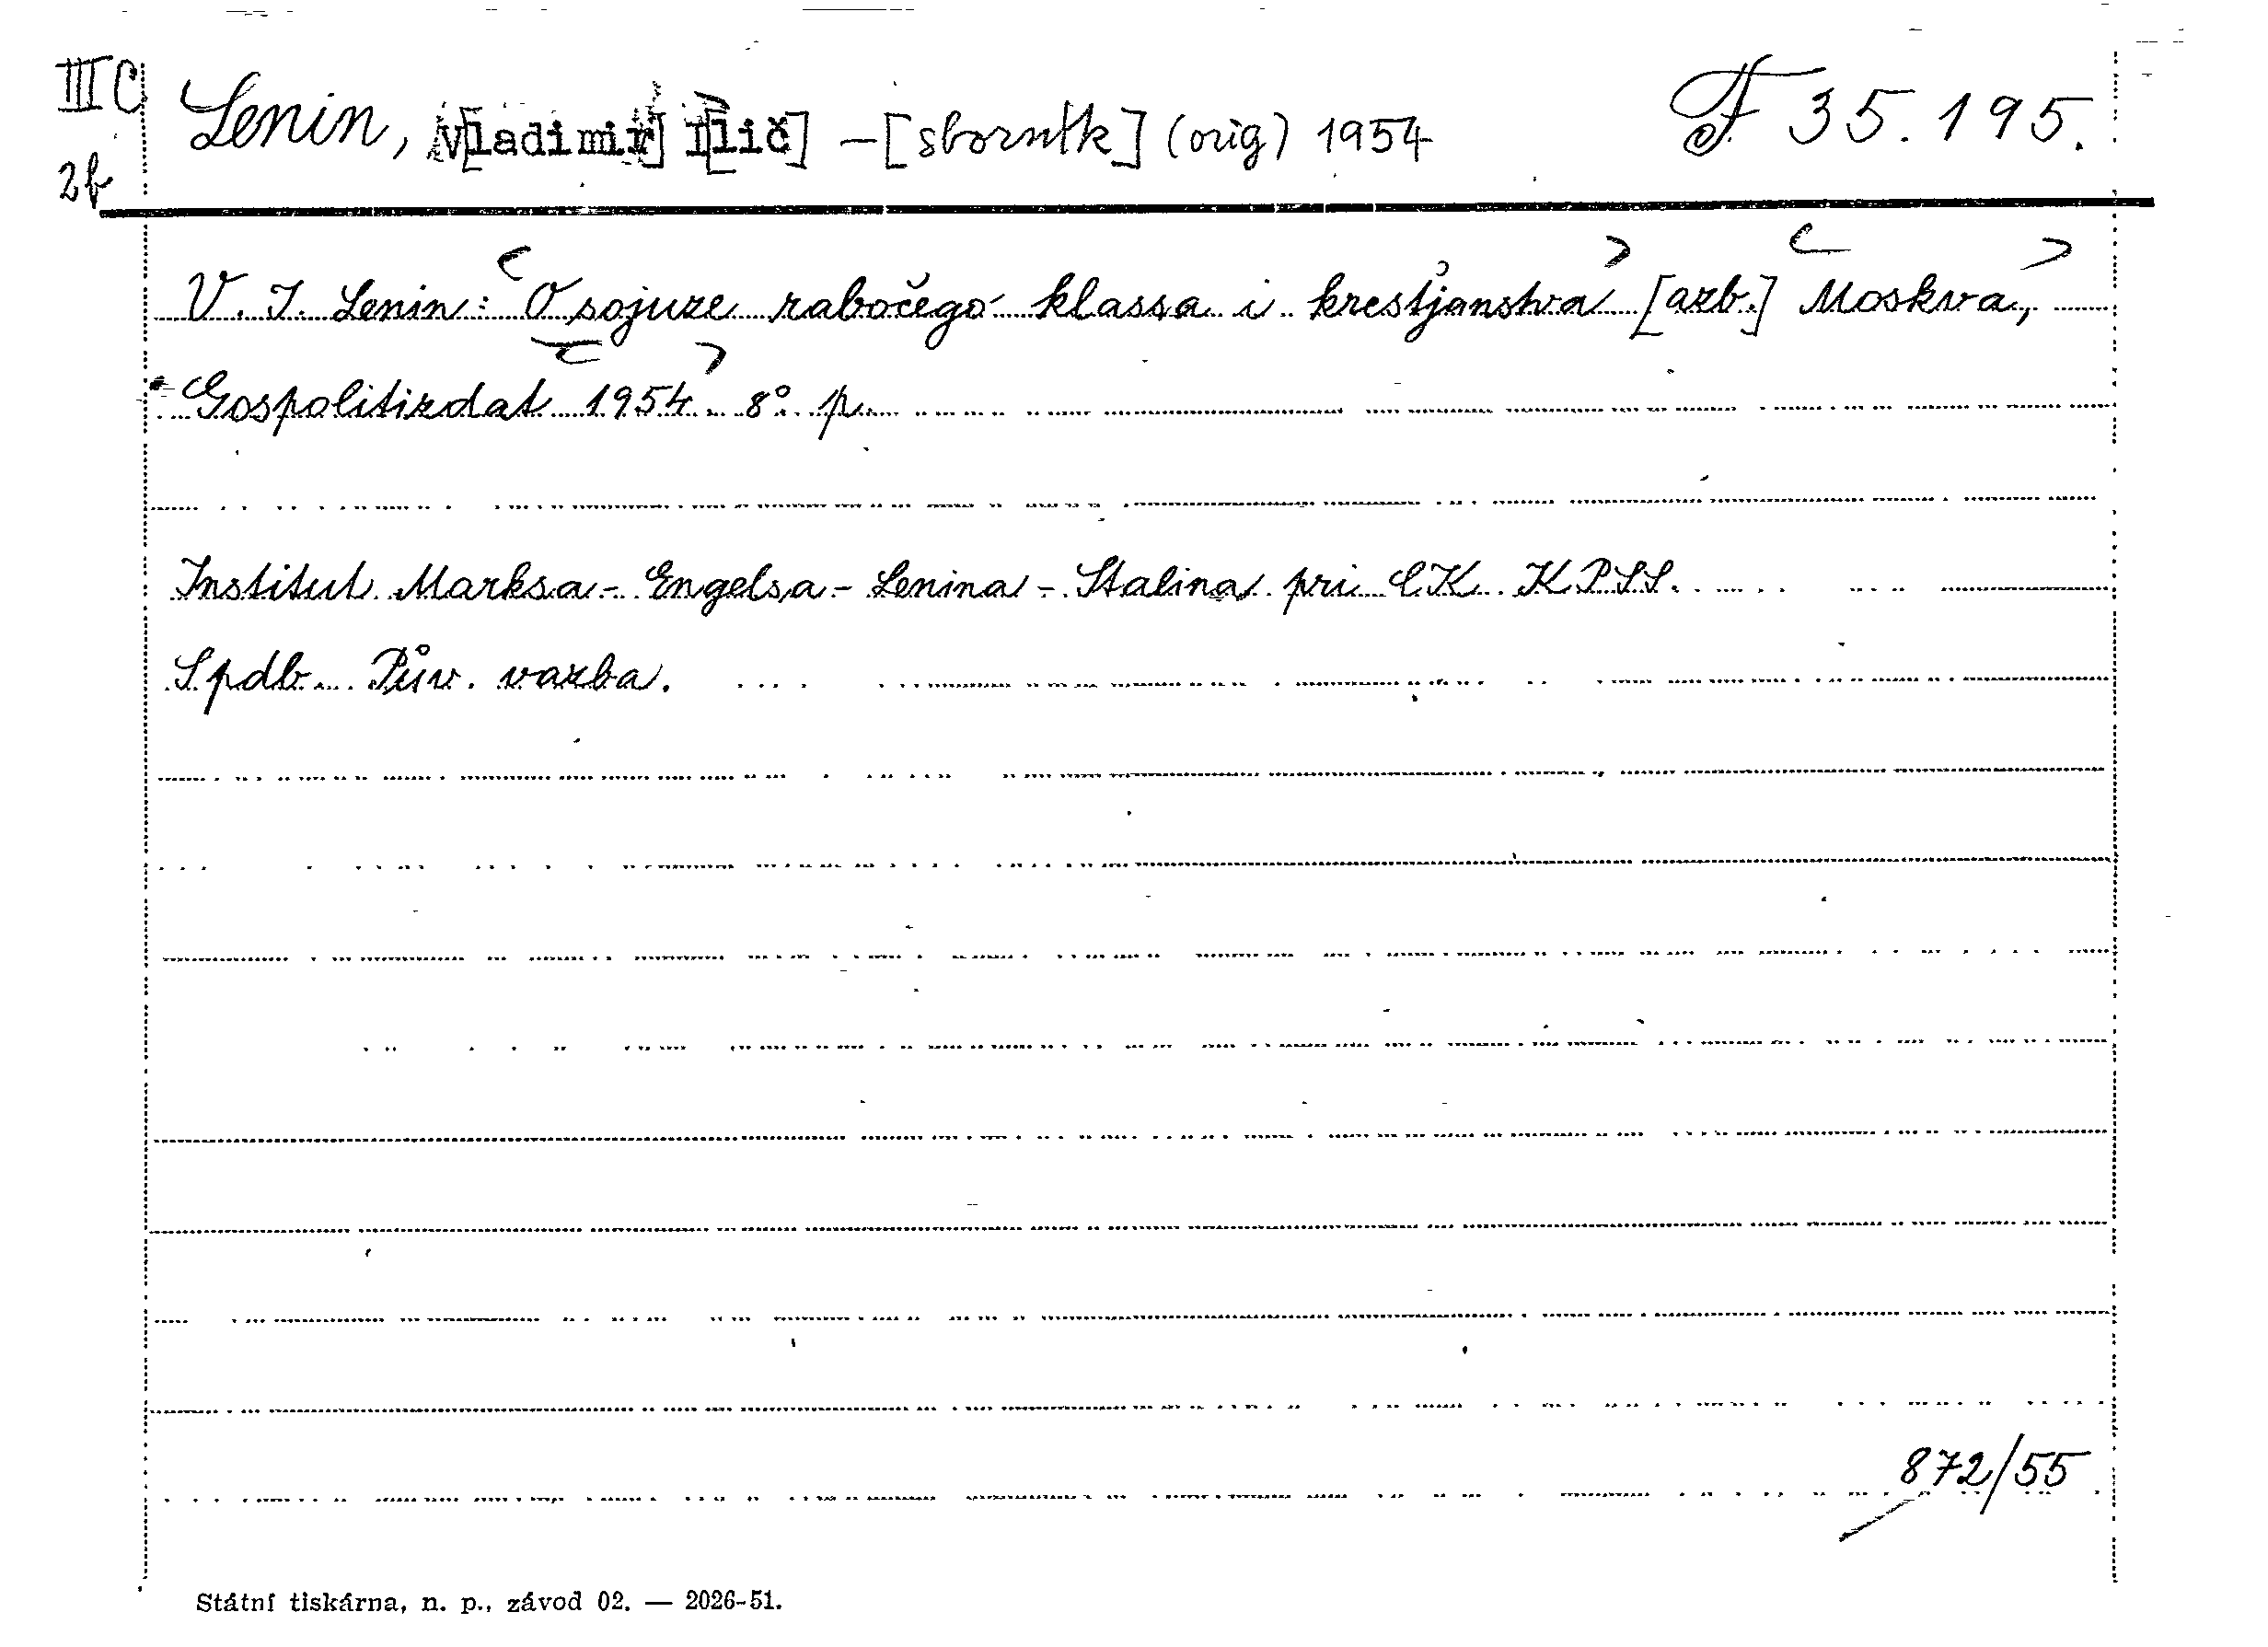 III C Lenin, V[ladimir] I[lič] – [sborník] (orig) 1954 F 35.195.
2b
V. I. Lenin: O sojuze rabočego klassa i krestjanstva [azb.] Moskva,
Gospolitizdat 1954. 8°. p.
Institut Marksa - Engelsa - Lenina - Stalina pri CK KPSS.
S pdb. Pův. vazba.
872/55
Státní tiskárna, n. p., závod 02. — 2026-51.